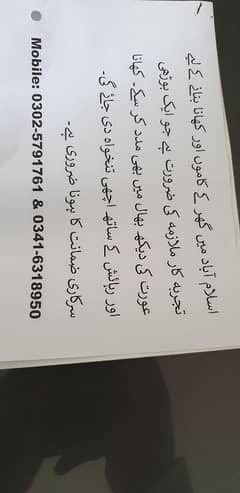 اسلام آباد میں گھر کے کاموں اور کھانا بنانے کے لیے
تجربہ کار ملازمہ کی ضرورت ہے جو ایک بوڑھی
عورت کی دیکھ بھال میں بھی مدد کر سکے۔ کھانا
اور رہائش کے ساتھ اچھی تنخواہ دی جائے گی۔
سرکاری ضمانت کا ہونا ضروری ہے۔
Mobile: 0302-5791761 & 0341-6318950